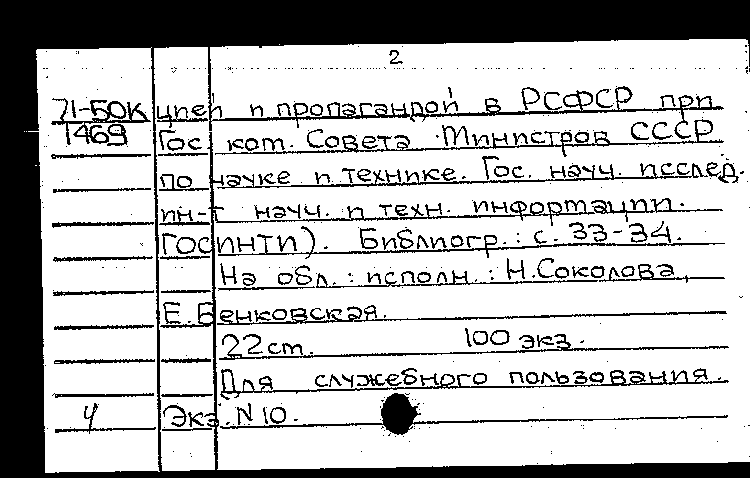 2
71-БОК цией и пропагандой в РСФСР при
1469 Гос. ком. Совета Министров СССР
по науке и технике. Гос. науч. исслед.
ин-т науч. и техн. информации.
ГОСИНТИ). Библиогр.: с. 33-34.
На обл.: исполн.: Н.Соколова,
Е.Бенковская.
22 cm. 100 экз.
Для служебного пользования.
4 Экз. N 10.